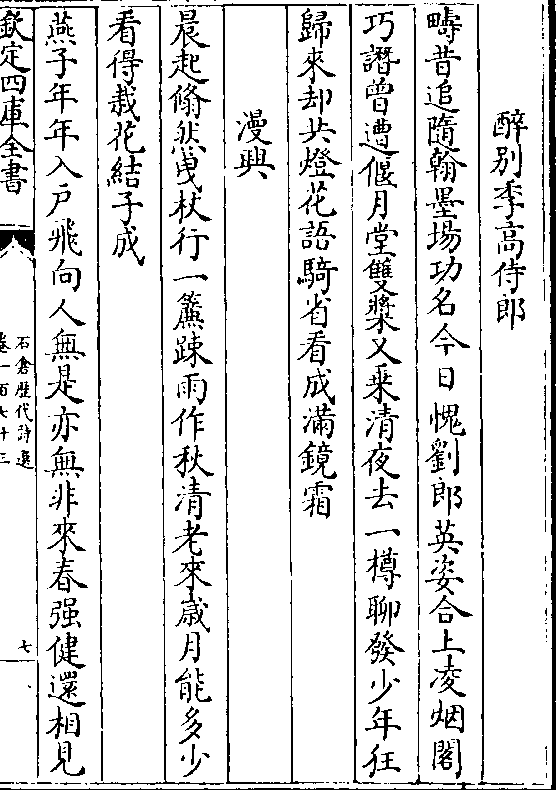 醉别季高侍郎
疇昔追隨翰墨場功名今日愧劉郎英姿合上凌烟閣
巧譖曾遭偃月堂雙槳又乗清夜去一樽聊發少年狂
歸來却共燈花語騎省看成滿鏡霜
漫興
晨起翛然曵杖行一簾踈雨作秋清老來歲月能多少
看得栽花結子成
燕子年年入户飛向人無是亦無非來春强健還相見
欽定四庫全書
石倉歴代詩選
卷一百七十三
七